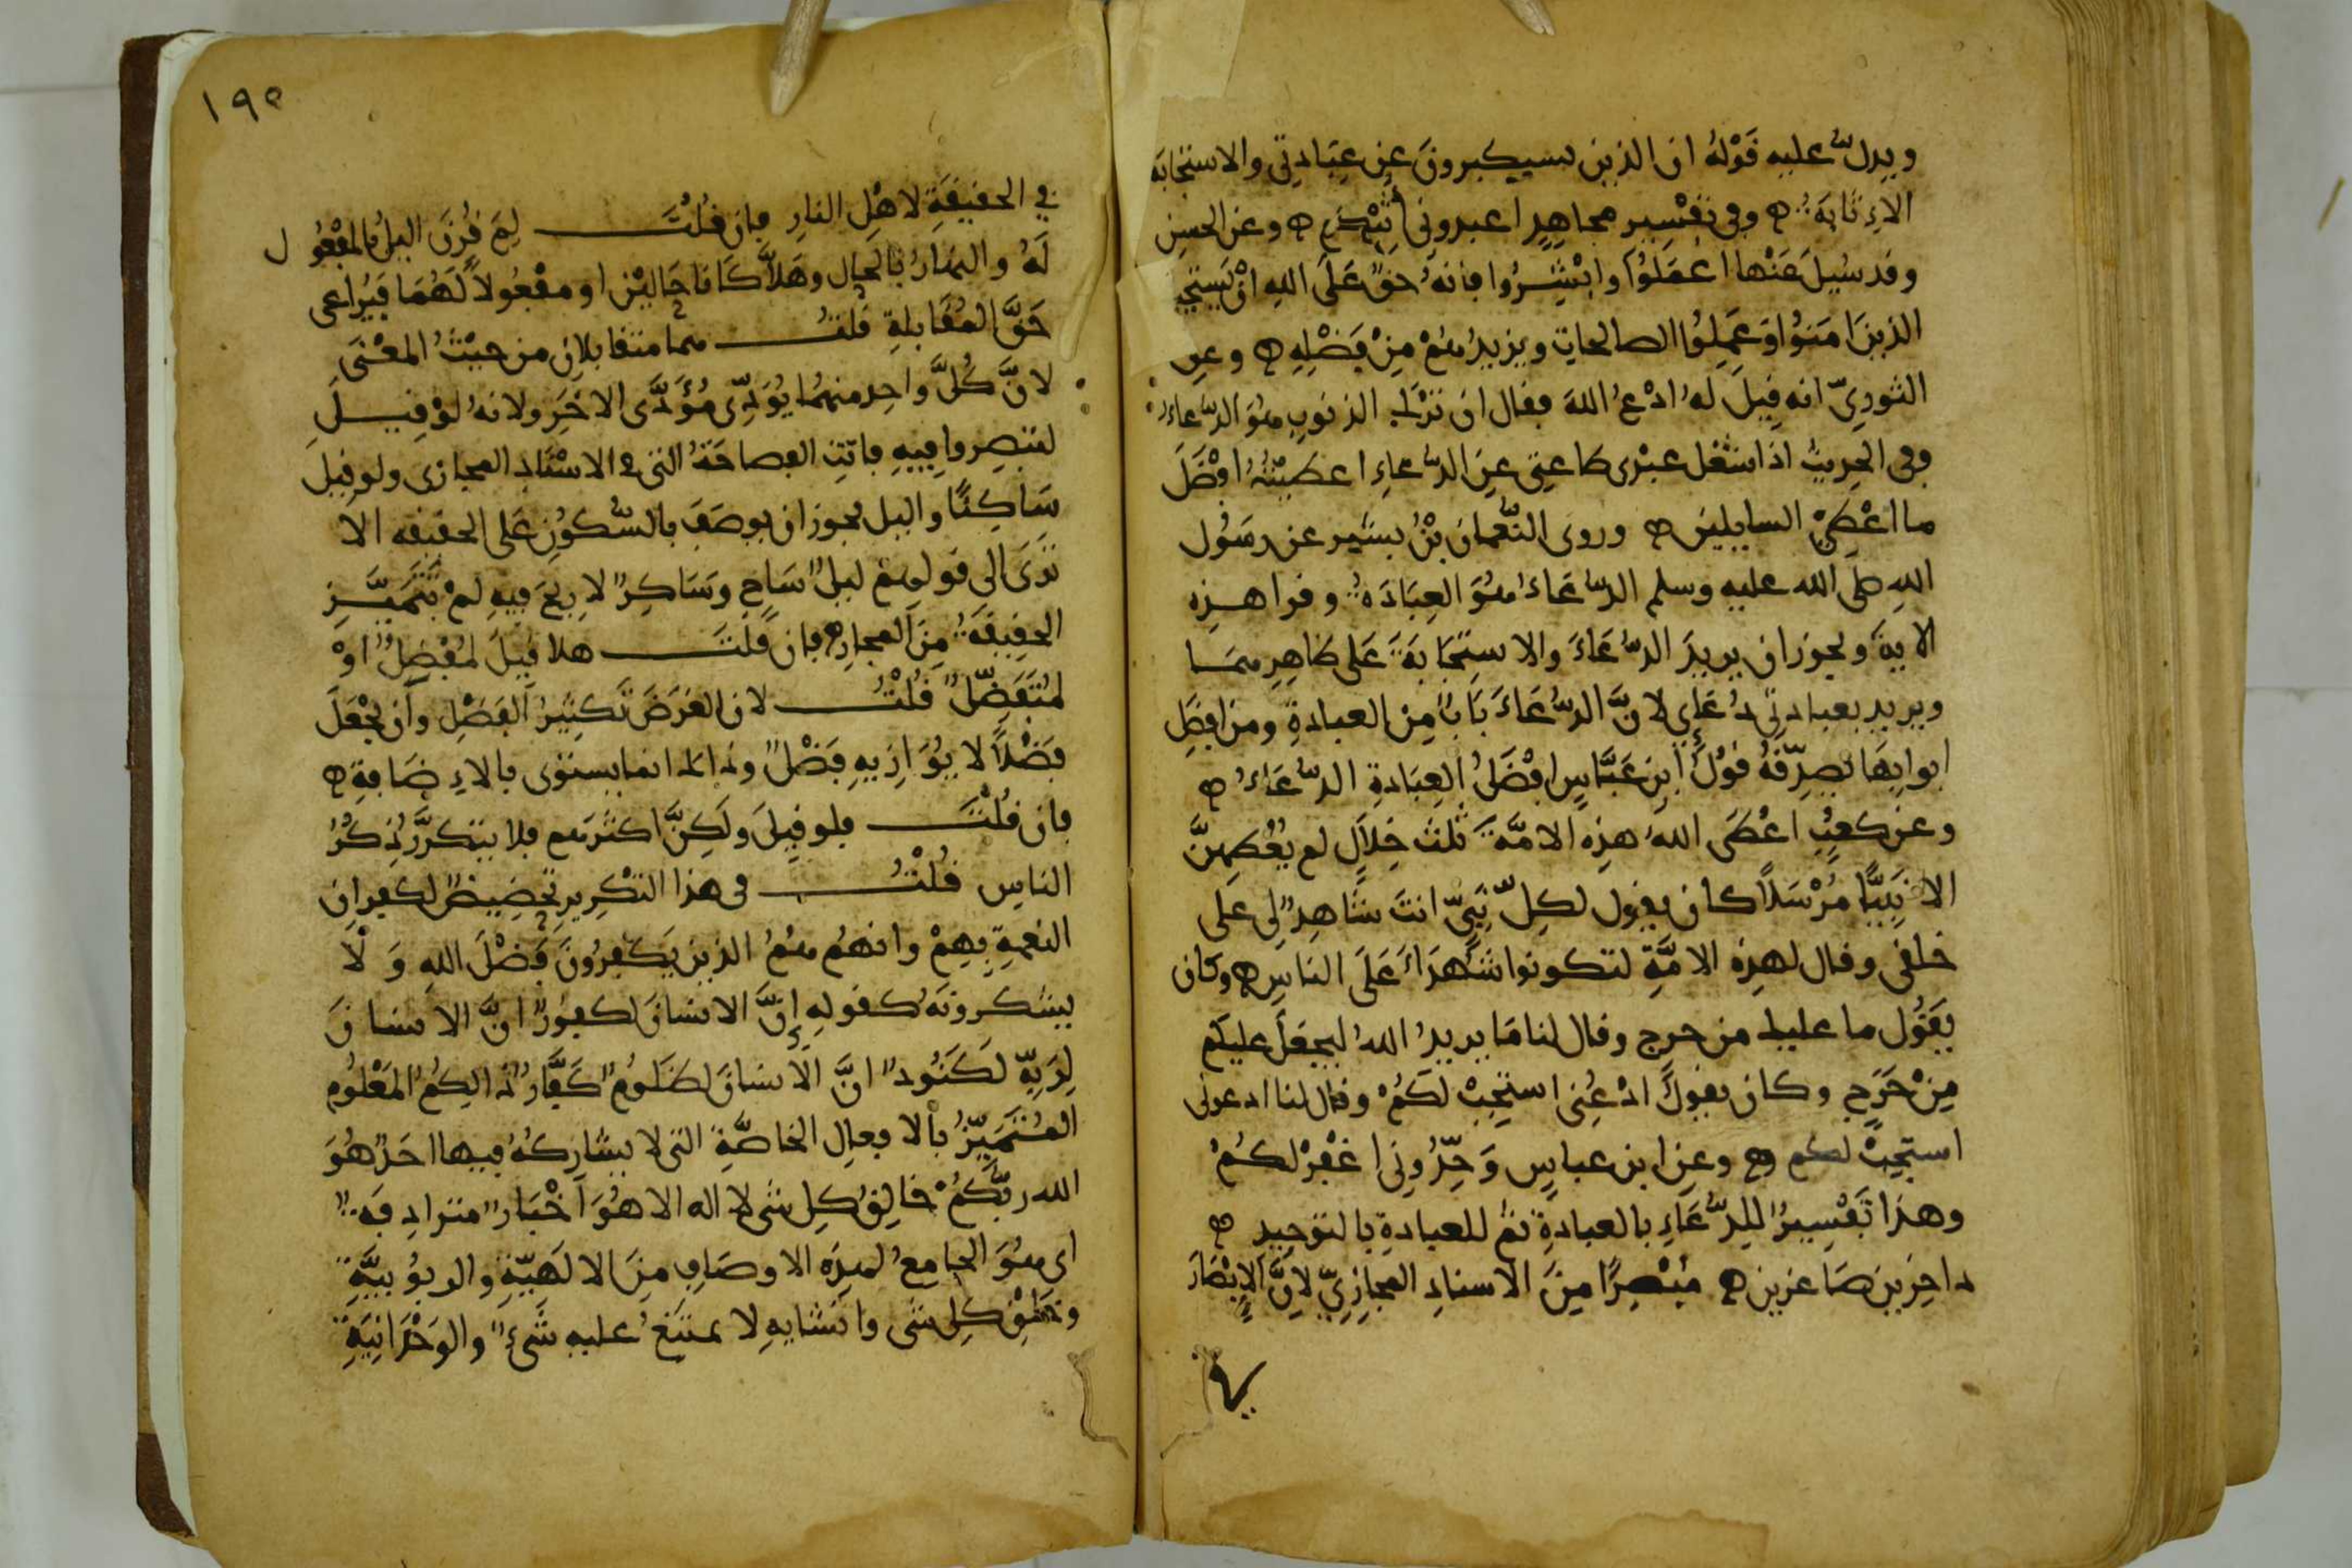 ويدل عليه قَوْلهُ ان الذين يستكبرونَ عن عِبَادتي والاستجابَة
الاِثابَةُ وفي تفسير مجاهِدٍ اعبدوني أُثِبْكُمْ وعن الحسنِ
وقد سُيِلَ عَنْها اعمَلُوا وابْشِرُوا فانهُ حقٌّ عَلَى اللهِ انْ يَستجيبَ
الذينَ امَنُوا وَعَمِلُوا الصالحاتِ ويزيدُهُمْ مِنْ فَضْلِهِ وعن
الثوريّ انه قِيلَ لهُ ادْعُ اللهَ فقال ان تَرْكَ الذنوبِ هُوَ الدّعاءُ
وفي الحديثِ اذا شغل عبْدى طاعتي عن الدّعاءِ اعطيتُهُ افْضَلَ
ما اعْطِي السايلين وروى النّعمان بْنُ بشير عن رسُول
اللهِ صلى الله عليه وسلم الدّعَاءُ هُوَ العِبَادَةُ وقرا هذِه
الايةَ ويجوز ان يريدَ الدّعَاءَ والاستِجَابَةَ عَلى ظاهِرِهِمَا
ويريد بعبادتِي دُعَاءِي لانَّ الدّعَاءَ بَابٌ مِن العبادةِ ومن افضَلِ
ابوابِهَا يُصدِّقُهُ قوْلُ ابنِ عَبَّاسٍ افْضَلُ العِبَادةِ الدّعَاءُ
وعن كعبٍ اعْطَى اللهُ هذِه الامَّةَ ثلثَ خِلالٍ لم يُعْطِهِنَّ
الا نَبِيًّا مُرْسَلاً كان يقول لكلّ نَبِيّ انتَ شَاهِدٌ لى عَلى
خلقى وقال لهذِه الامَّةِ لتكونوا شُهَدَاءَ عَلَى الناسِ وكان
يقُول ما عليك من حرج وقال لنا مَا يريدُ اللهُ ليجعَلَ عليكم
مِنْ حَرَجٍ وكان يقولُ ادْعُنِى استجِبْ لكَ وقال لنا ادعونى
استجِبْ لكم وعن ابن عباسٍ وَحِّدُونِى اغْفِرْ لكُمْ
وهذا تَفْسِيرٌ للدّعَاءِ بالعبادةِ ثمّ للعبادةِ بالتوحيدِ
داخِرين صَاغرين مُبْصِرًا مِنَ الاسنادِ المجازِيّ لاِنَّ الاِبْصَارَ
١٩٥
في الحقيقَةِ لاهْلِ النارِ فإن قُلْتَ لِمَ قُرِنَ اليلُ بالمفْعُول
لَهُ والنهارُ بالحال وهَلاَّ كَانَا حَاليْنِ او مفْعُولاً لَهُمَا فيُراعى
حَقَّ المُقَابلةِ قُلتُ هما متقابلانِ من حيْثُ المعْنَى
لانَّ كُلَّ واحِدٍ منهمَا يُؤَدِّى مُؤَدَّى الاخَرِ ولانهُ لوْ قِيلَ
لتبصِروا فِيهِ فاتتِ الفصاحَةُ التى في الاسْنَادِ المجازى ولو قيلَ
سَاكِنًا واليل يجوز ان يوصَفَ بالسُّكُونِ عَلى الحقيقه الا
تَرَى الَى قولهم ليلٌ سَاجٍ وَسَاكِنٌ لا رِيحَ فيهِ لم تَتَمَيَّزِ
الحقِيقَةُ مِنَ المجازِ فإن قُلْتَ هلا قِيلَ لمُفْضِلٌ اوْ
لمُتَفَضِّلٌ قُلْتُ لان الغَرَضَ تَكثِيرُ الفَضْلِ وأن يُجْعَلَ
فَضْلاً لا يُوَازِيهِ فَضْلٌ وذلك انما يستوى بالاِضَافةِ
فان قُلْتَ فلو قِيلَ ولَكِنَّ اكثرَهم فلا يتكرَّرُ ذِكْرُ
الناسِ قُلْتُ فى هذا التكْرِيرِ تخصِيصٌ لكفرانِ
النعمةِ بِهِمْ وانهُم هُمُ الذين يَكفرُونَ فَضْلَ اللهِ وَلَا
يشكرونَهُ كقولهِ إنَّ الانسانَ لكفورٌ انَّ الانسانَ
لِرَبِّهِ لَكَنُودٌ انَّ الانسَانَ لظَلُومٌ كَفَّارٌ ذالِكُمُ المَعْلُومُ
المُتَمَيِّزُ بالافعالِ الخاصَّةِ التى لا يشَارِكُهُ فيها احَدٌ هُوَ
الله ربُّكُمْ خالِقُ كلِ شى لا اله الا هُوَ اخْبَارٌ مترادِفَةٌ
اى هُوَ الجامعُ لهذِه الاوصَافِ مِنَ الالَهِيَّةِ والربُوبيَّةِ
وخَلْقِ كلِ شى وانشايهِ لا يمتَنِعُ عليهِ شَىْءٌ والوَحْدَانِيَةِ